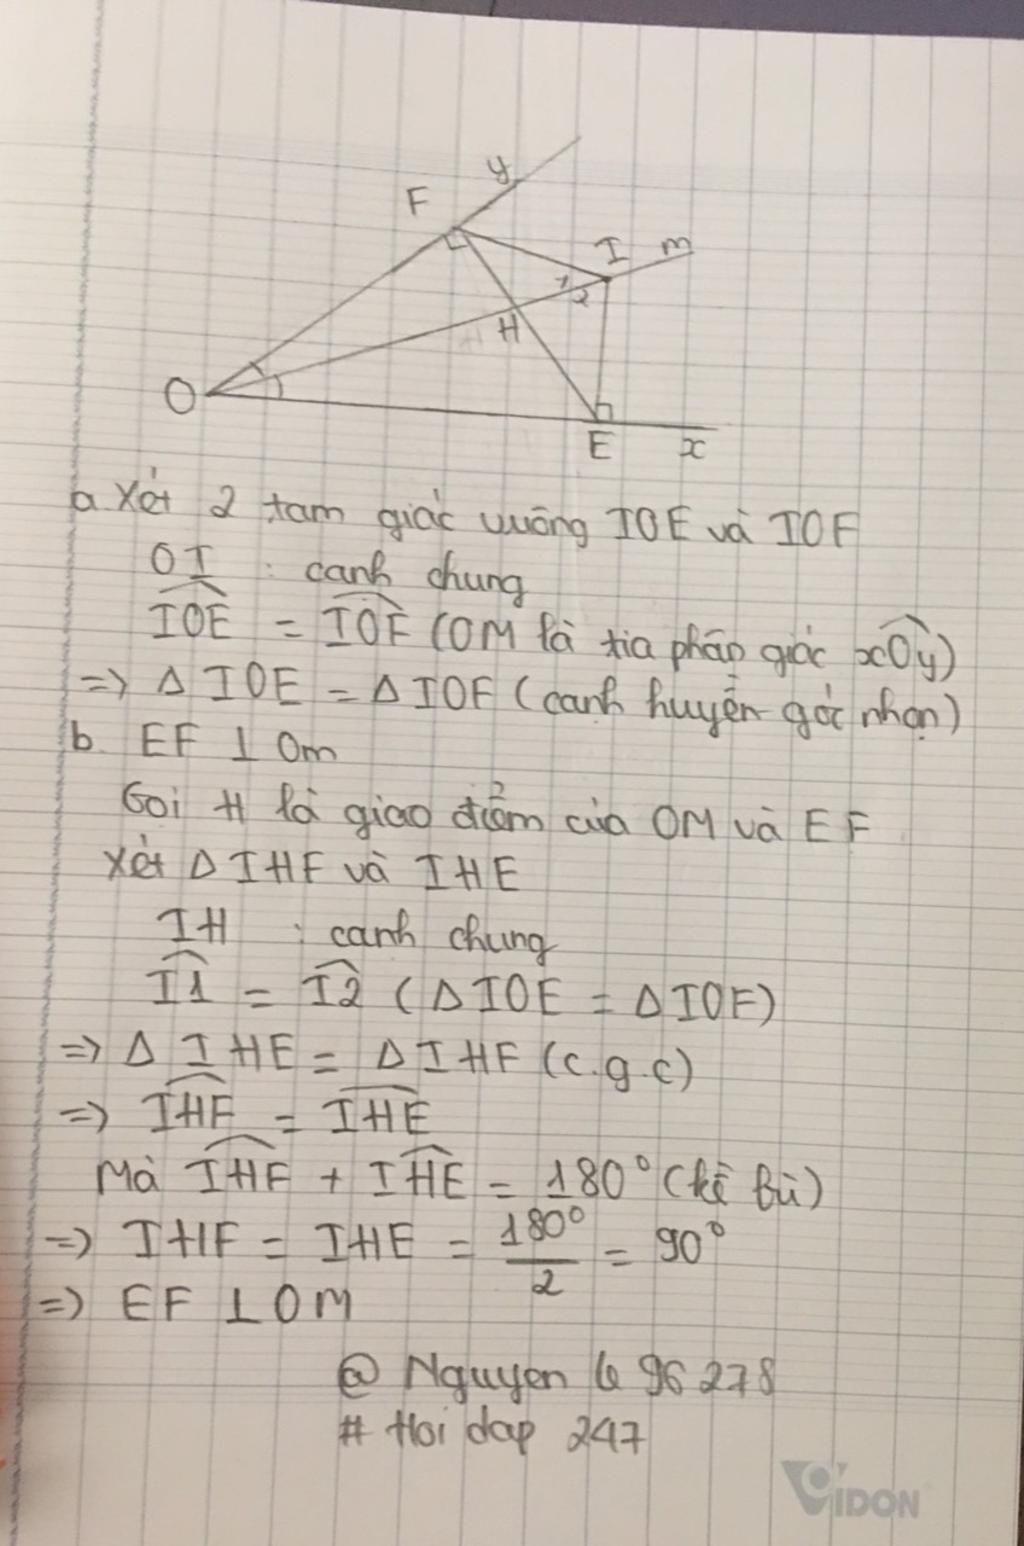 y
F
I m
1
2
H
O
E x
a. Xét 2 tam giác vuông IOE và IOF
OI : cạnh chung
IOE = IOF (OM là tia phân giác xOy)
=> Δ IOE = Δ IOF (cạnh huyền góc nhọn)
b. EF ⊥ Om
Gọi H là giao điểm của OM và EF
Xét Δ IHF và IHE
IH : cạnh chung
I1 = I2 (Δ IOE = Δ IOF)
=> Δ IHE = Δ IHF (c.g.c)
=> IHF = IHE
Mà IHF + IHE = 180° (kề bù)
=> IHF = IHE = 180°/2 = 90°
=> EF ⊥ OM
@ Nguyen le 96278
# Hoi dap 247
VIDON